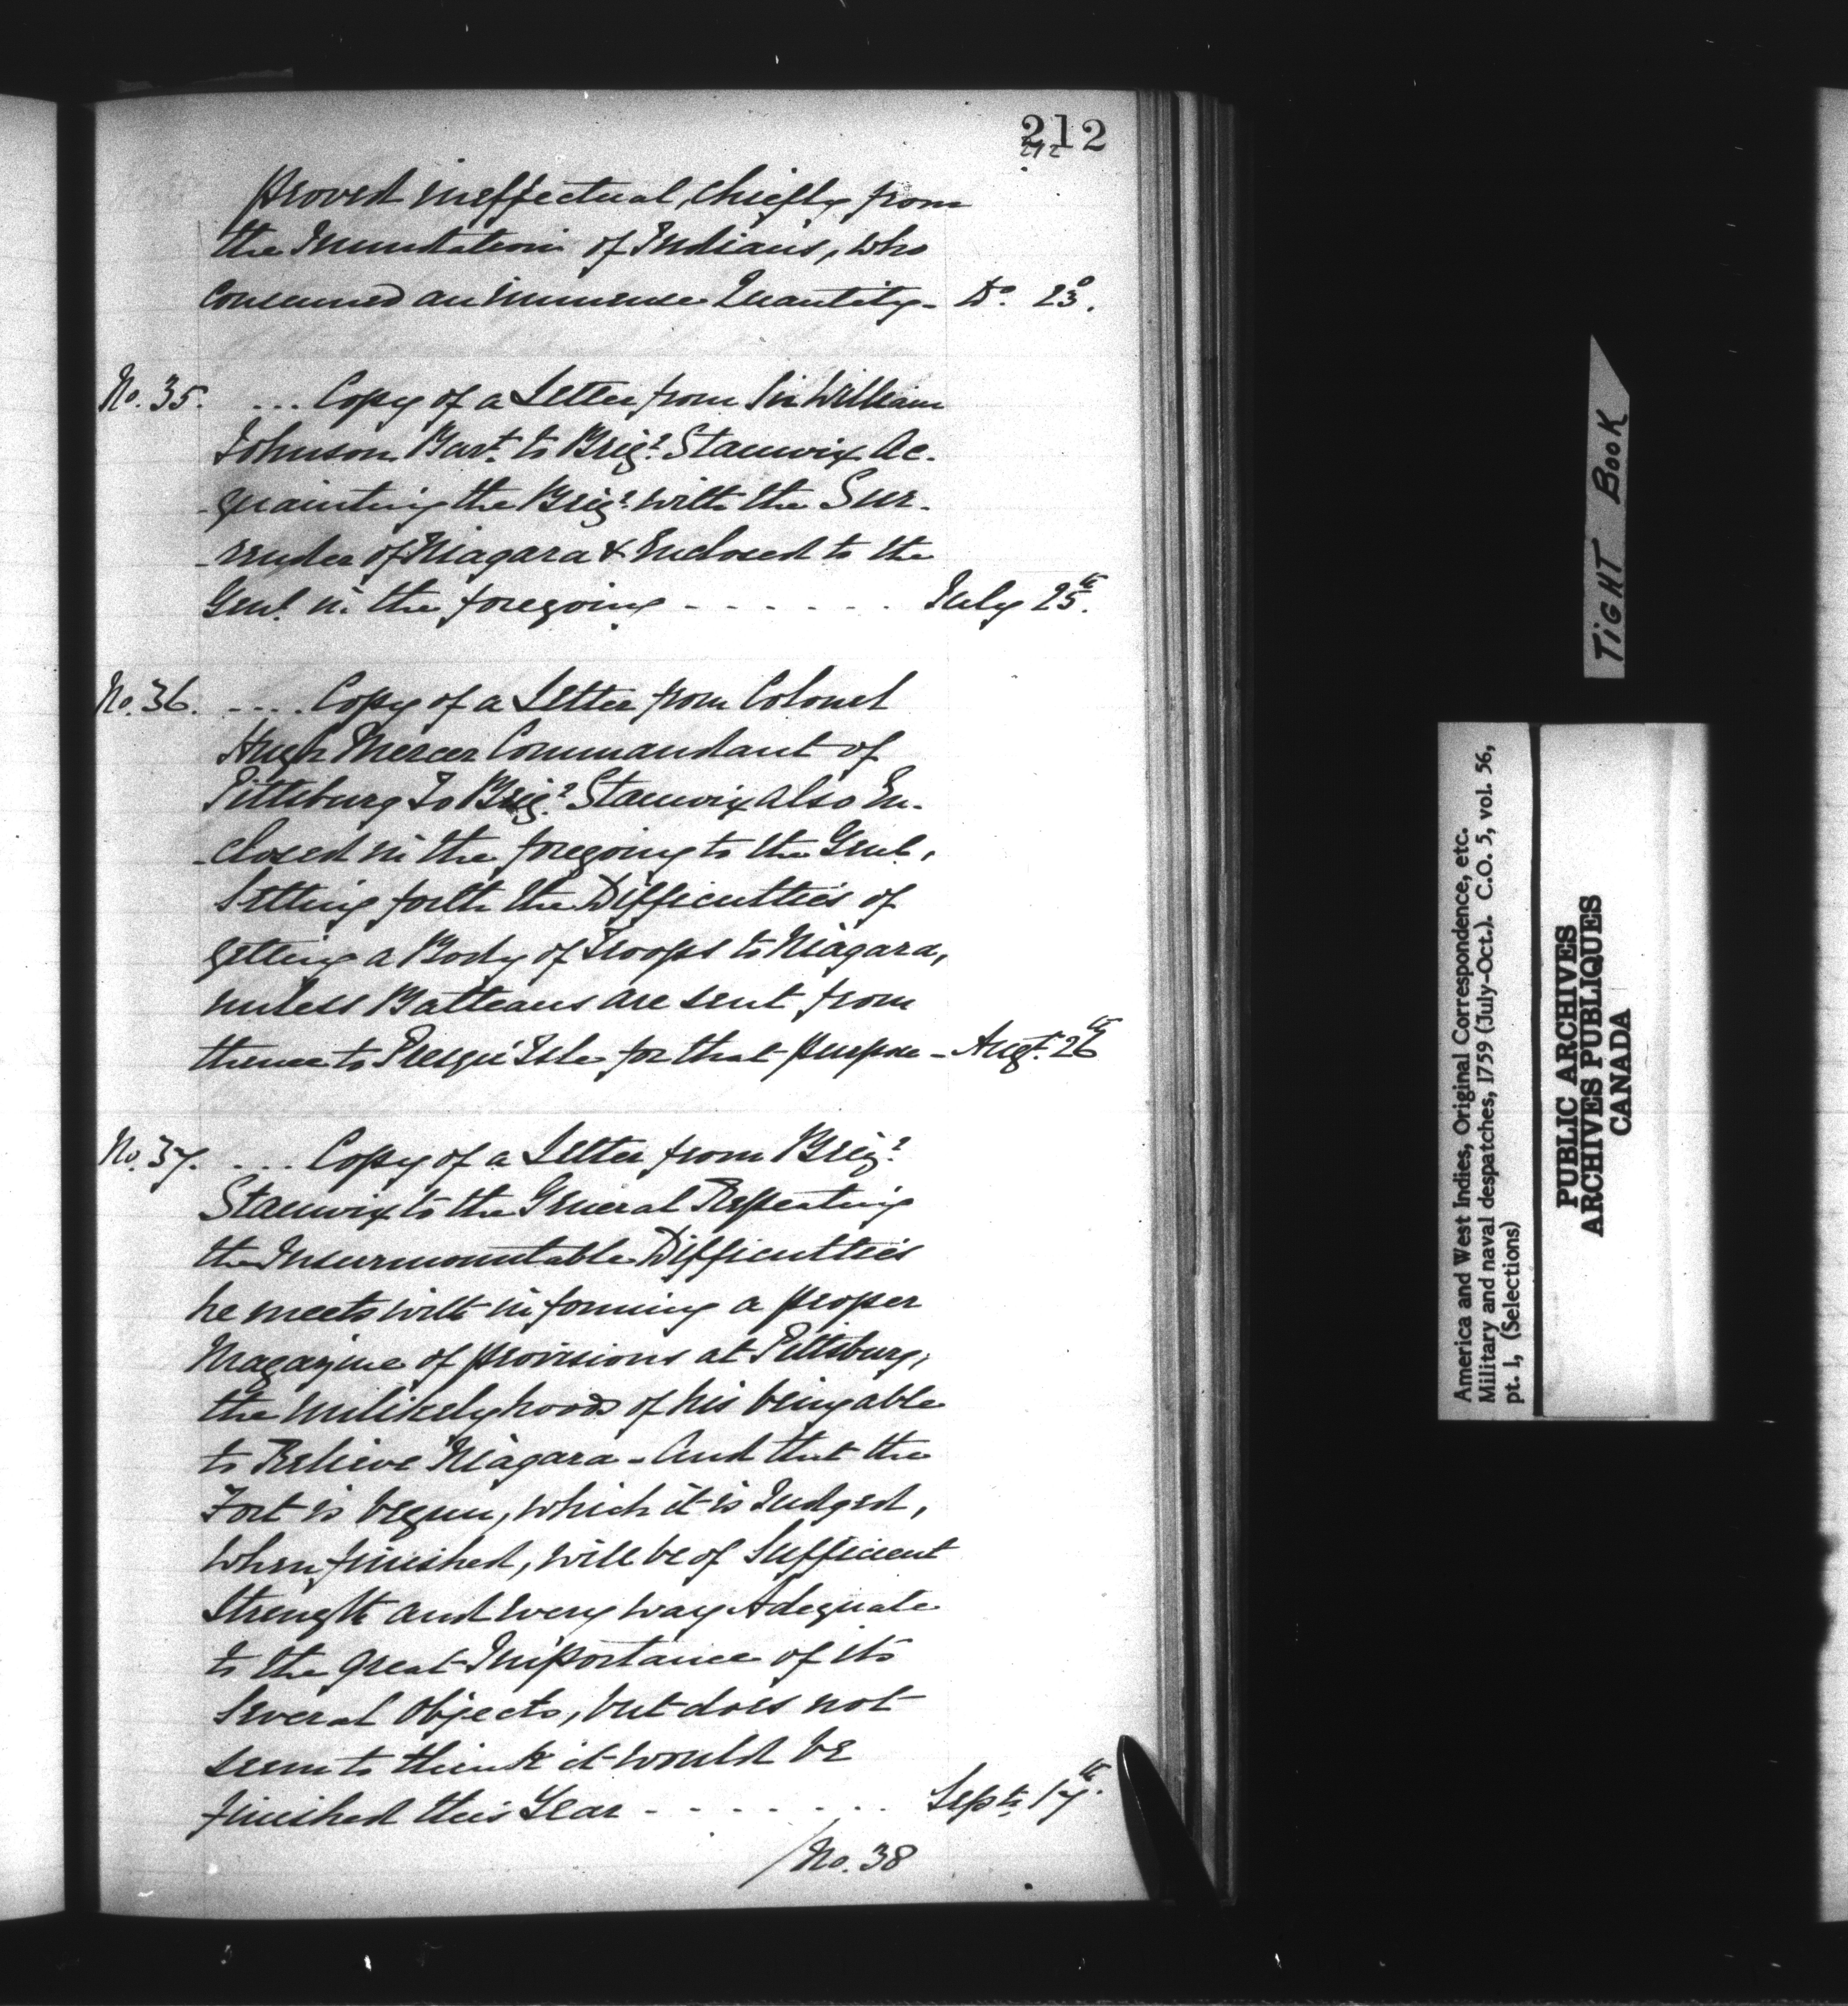 212
212
proved ineffectual, chiefly from
the Inundation of Indians, who
consumed an immense Quantity - Do. 23.
No. 35. ... Copy of a Letter from Sir William
Johnson Bart. to Brigr. Stanwix Ac-
-quainting the Brigr. with the Sur-
-render of Niagara & Enclosed to the
Genl. in the foregoing - - - - - - - July 25th.
No. 36. .... Copy of a Letter from Colonel
Hugh Mercer Commandant of
Pittsburg To Brigr. Stanwix also En-
-closed in the foregoing to the Genl,
Setting forth the Difficulties of
getting a Body of Troops to Niagara,
unless Batteaus are sent from
thence to Presqu'Isle for that purpose - Augt. 26th
No. 37. .... Copy of a Letter from Brigr.
Stanwix to the General Repeating
the Insurmountable Difficulties
he meets with in forming a proper
Magazine of provisions at Pittsburg,
the unlikelyhood of his being able
to Relieve Niagara - And that the
Fort is begun, which it is Judged,
when finished, will be of Sufficient
Strength and every way Adequate
to the great Importance of its
several Objects, but does not
seem to think it would be
finished this Year - - - - - - - Septr. 17th.
/No. 38
TIGHT BOOK
America and West Indies, Original Correspondence, etc.
Military and naval despatches, 1759 (July-Oct.). C.O. 5, vol. 56,
pt. 1, (Selections)
PUBLIC ARCHIVES
ARCHIVES PUBLIQUES
CANADA